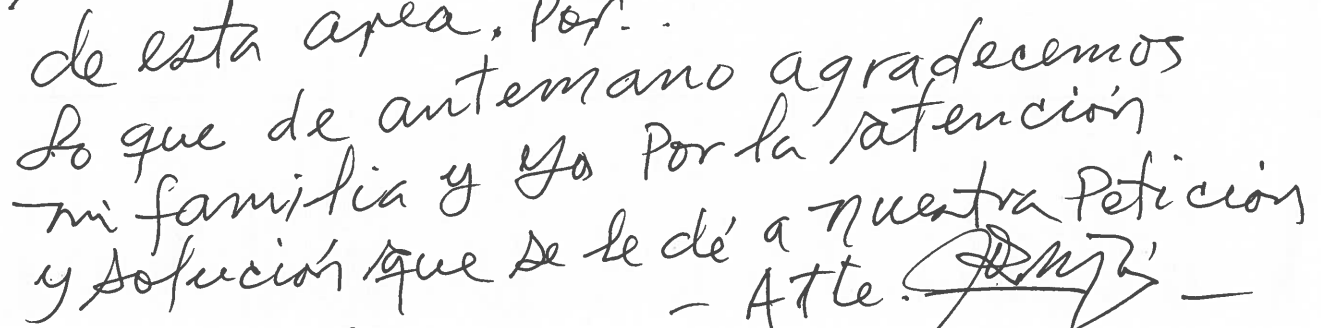 de esta area. Por..
Lo que de antemano agradecemos
mi familia y yo Por la atención
y solución que se le dé a nuestra Petición
- Atte.